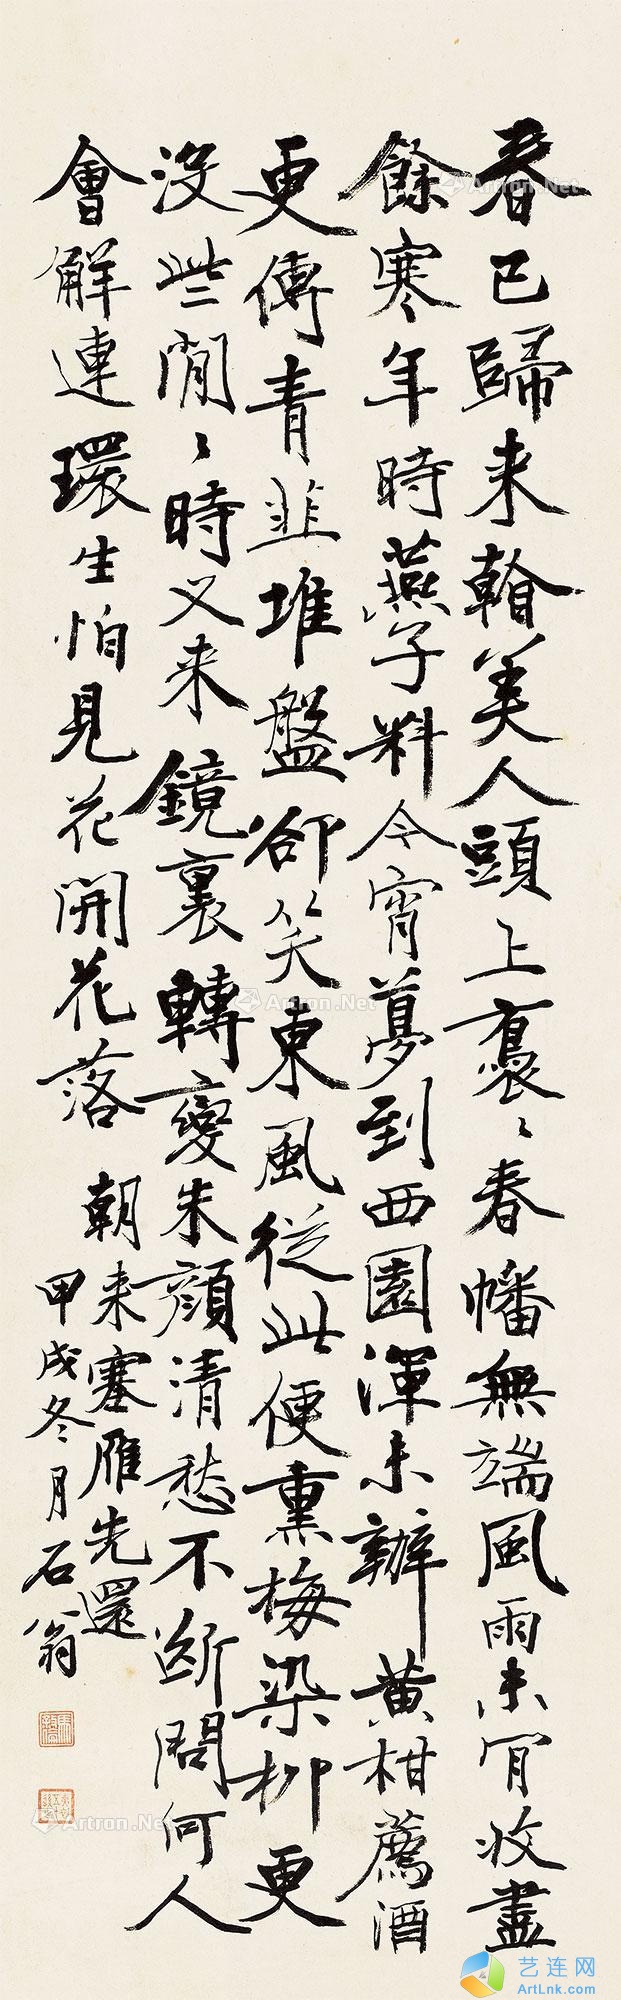 春已歸来看美人頭上裊〻春幡無端風雨未肎收盡
餘寒年時燕子料今宵夢到西園渾未辦黄柑薦酒
更傳青韭堆盤卻笑東風從此便熏梅染柳更
没些閒〻時又来鏡裏轉變朱顔清愁不斷問何人
會解連環生怕見花開花落 朝来塞雁先還
甲戌冬月石翁
Artron.Net
Artron.Net
Artron.Net
艺连网
ArtLnk.com